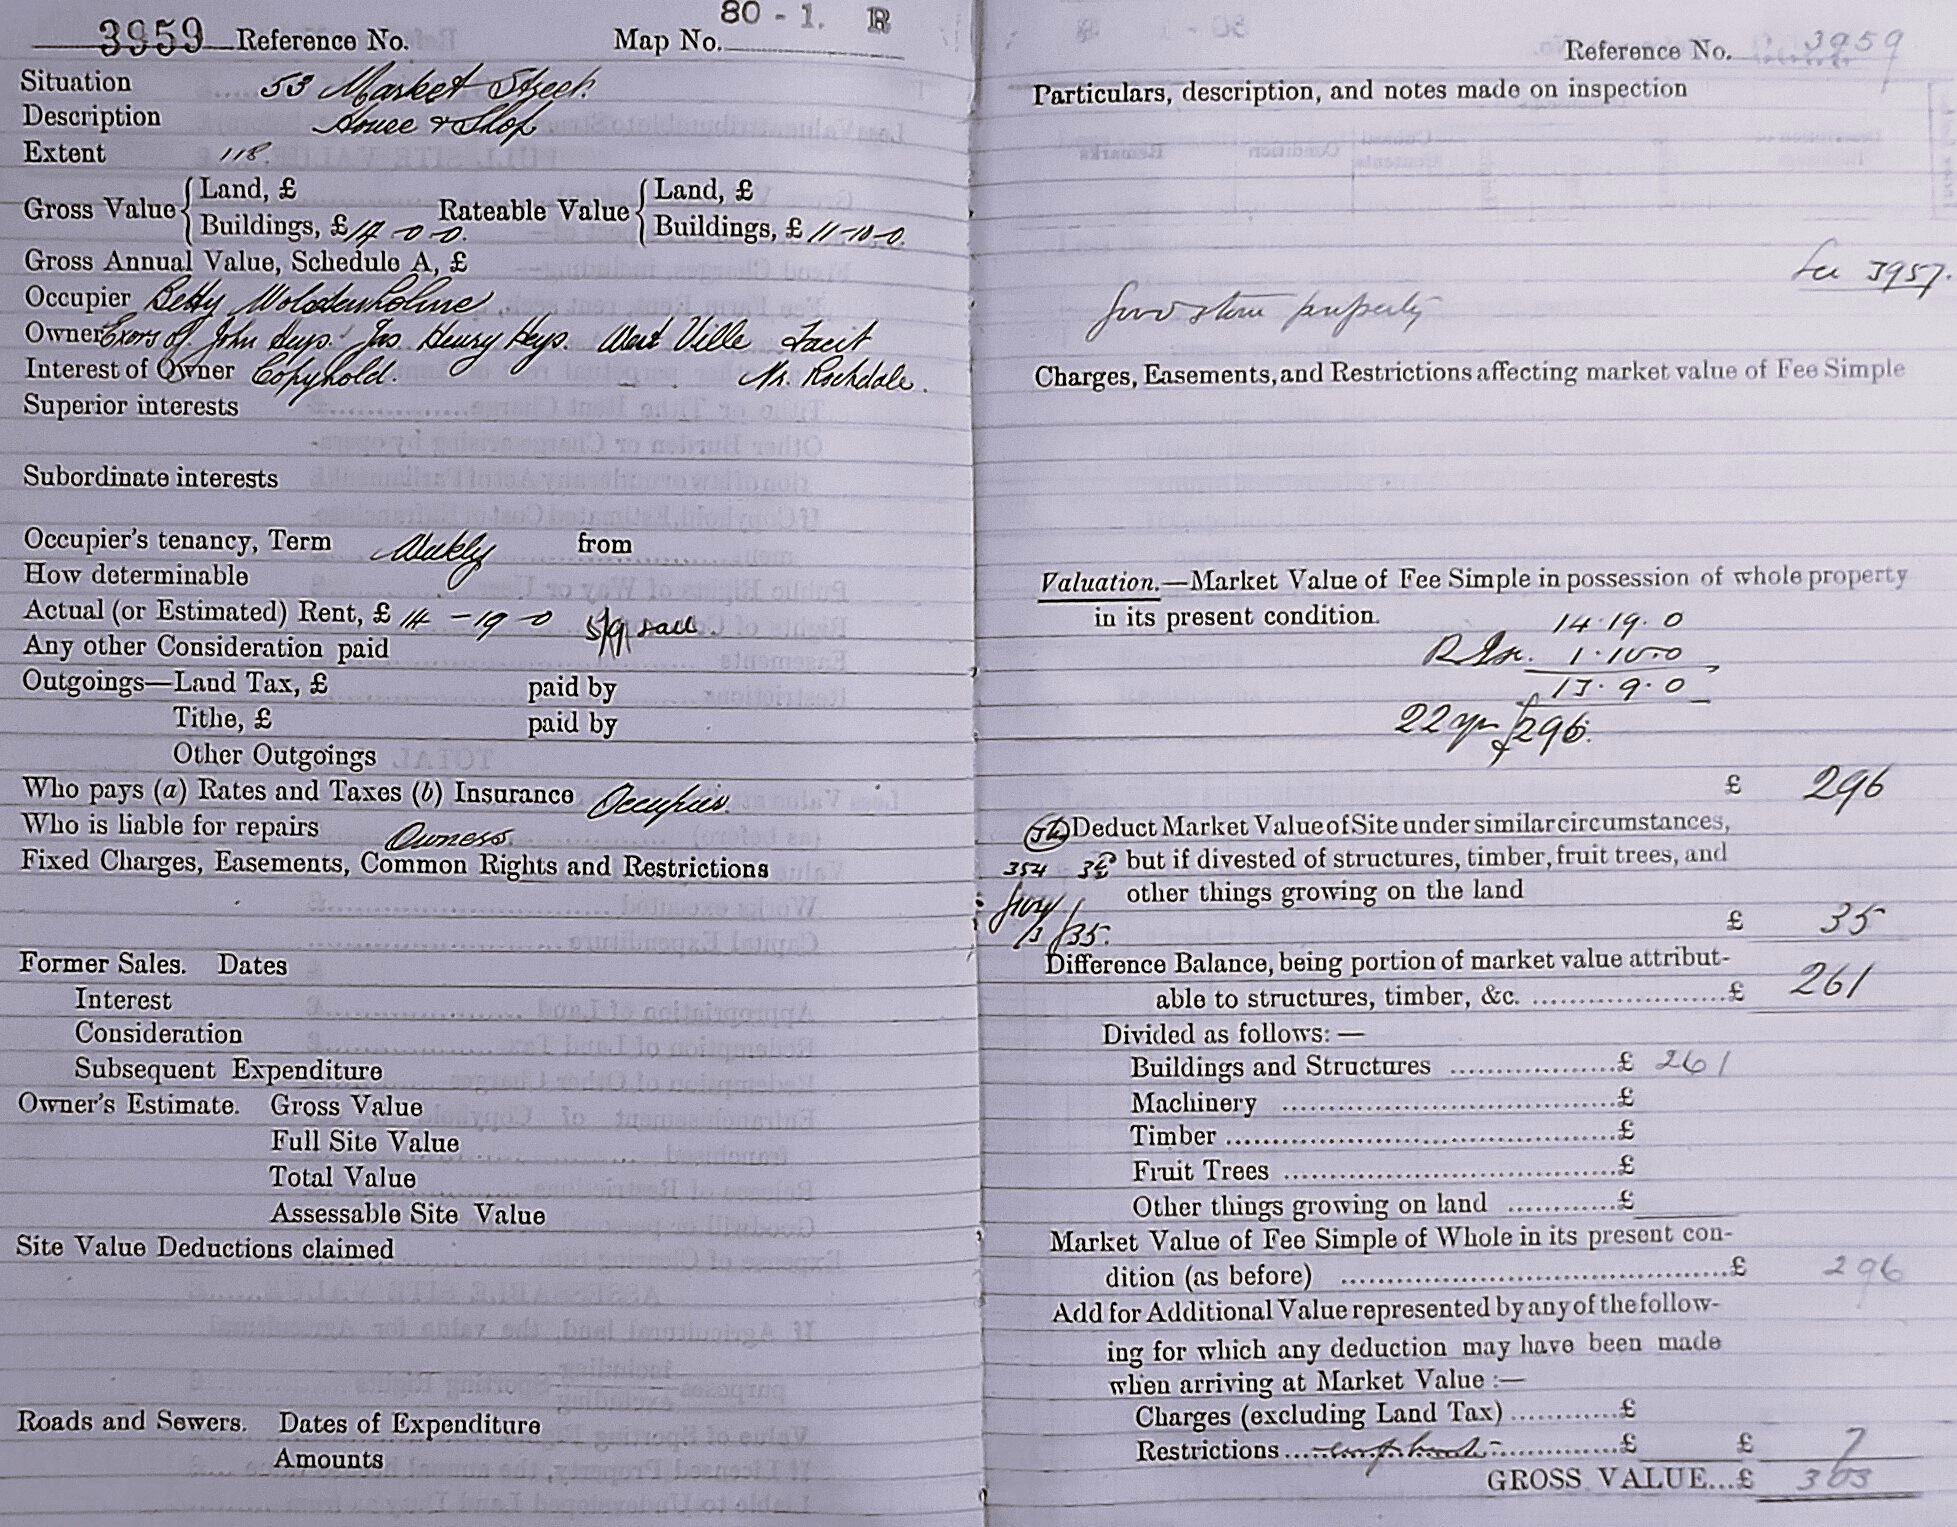 3959 Reference No. Map No. 80 - 1. R
Situation 53 Market Street.
Description House & Shop
Extent 118.
Gross Value { Land, £ Rateable Value { Land, £
Buildings, £ 14-0-0. Buildings, £ 11-10-0.
Gross Annual Value, Schedule A, £
Occupier Betty Wolstenholme
Owner Exors of John Heys. Jas Henry Heys. West Ville Facit
Interest of Owner Copyhold. Nr. Rochdale.
Superior interests
Subordinate interests
Occupier's tenancy, Term Weekly from
How determinable
Actual (or Estimated) Rent, £ 14-19-0 5/9
Any other Consideration paid
Outgoings—Land Tax, £ paid by
Tithe, £ paid by
Other Outgoings
Who pays (a) Rates and Taxes (b) Insurance Occupier.
Who is liable for repairs Owners.
Fixed Charges, Easements, Common Rights and Restrictions
Former Sales. Dates
Interest
Consideration
Subsequent Expenditure
Owner's Estimate. Gross Value
Full Site Value
Total Value
Assessable Site Value
Site Value Deductions claimed
Roads and Sewers. Dates of Expenditure
Amounts
Reference No. 3959
Particulars, description, and notes made on inspection
3957.
stone property
Charges, Easements, and Restrictions affecting market value of Fee Simple
Valuation.—Market Value of Fee Simple in possession of whole property
in its present condition.
14.19.0
1.10.0
13.9.0
22 yrs £296.
£ 296
Deduct Market Value of Site under similar circumstances,
354 but if divested of structures, timber, fruit trees, and
other things growing on the land
£ 35
35.
Difference Balance, being portion of market value attribut-
able to structures, timber, &c. £ 261
Divided as follows:—
Buildings and Structures £ 261
Machinery £
Timber £
Fruit Trees £
Other things growing on land £
Market Value of Fee Simple of Whole in its present con-
dition (as before) £ 296
Add for Additional Value represented by any of the follow-
ing for which any deduction may have been made
when arriving at Market Value :—
Charges (excluding Land Tax) £
Restrictions copyhold £ £ 7
GROSS VALUE...£ 303